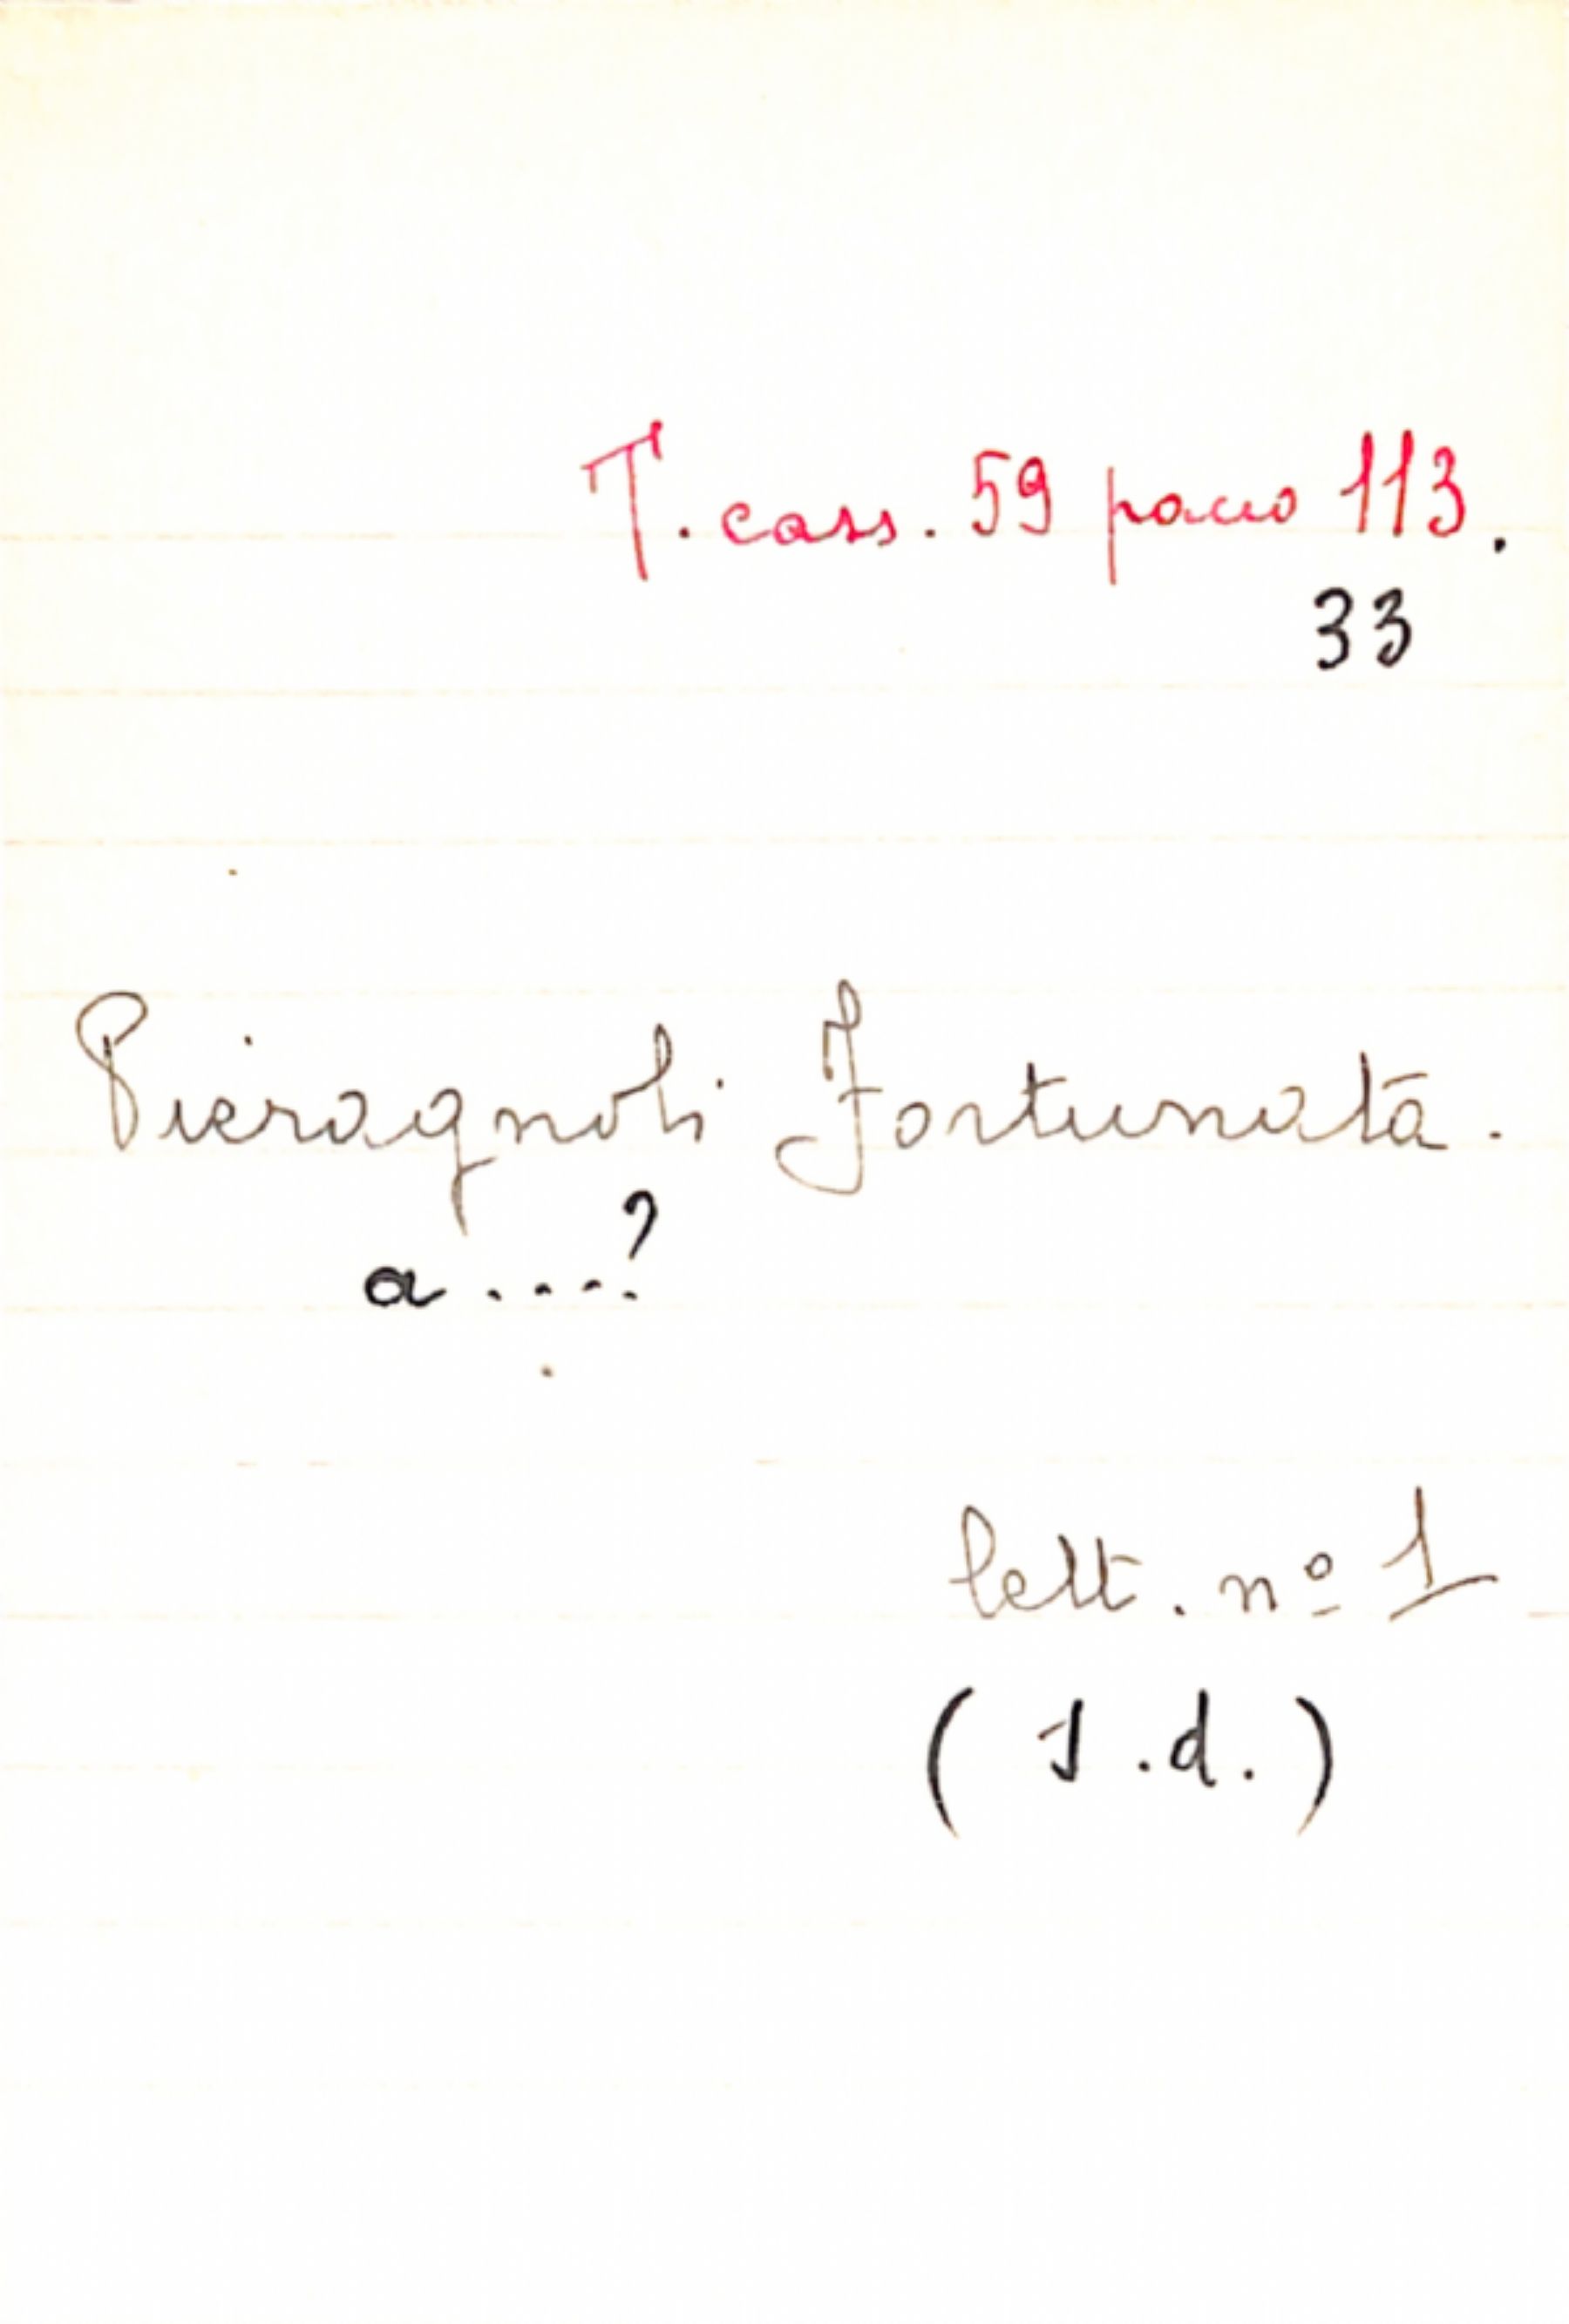 T. cass. 59 pacco 113.
33
Pieragnoli Fortunata.
a ....?
lett. nº 1
(s.d.)